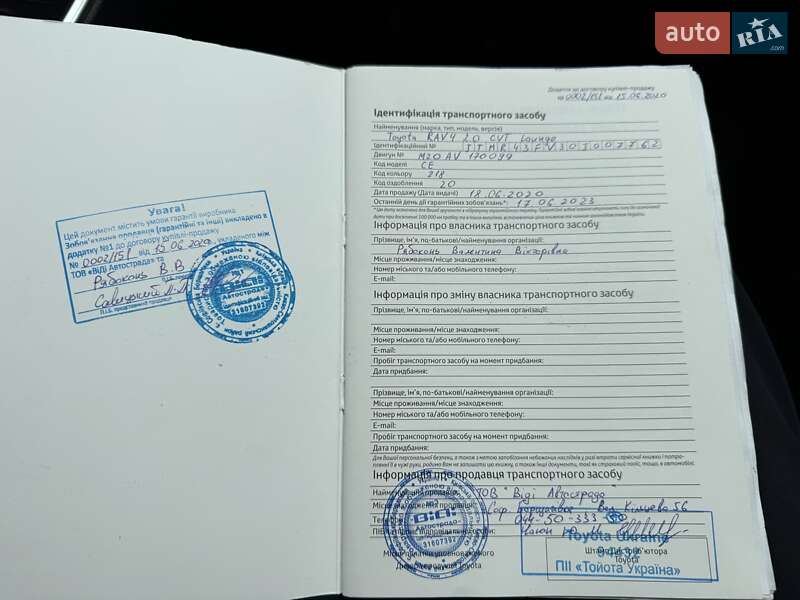 auto RIA .com
Увага!
Цей документ містить умови гарантії виробника
Зобов'язання продавця (гарантійні та інші) викладено в
додатку №1 до договору купівлі-продажу
№ 0002/151 від 15 06 2020, укладеного між
ТОВ «ВіДі Автострада» та
Рябоконь В. В
П.І.Б. представника продавця
ВіДі
Автострада
31607392
Додаток до договору купівлі-продажу
№ 0002/151 від 15.06.2020
Ідентифікація транспортного засобу
Найменування (марка, тип, модель, версія)
Toyota RAV4 2.0 CVT Lounge
Ідентифікаційний №
Двигун № M20AV 170099
Код моделі CE
Код кольору 218
Код оздоблення 20
Дата продажу (Дата видачі) 18.06.2020
Останній день дії гарантійних зобов'язань*: 17.06.2023
Інформація про власника транспортного засобу
Прізвище, ім'я, по-батькові/найменування організації:
Рябоконь Валентина Вікторівна
Місце проживання/місце знаходження:
Номер міського та/або мобільного телефону:
E-mail:
Інформація про зміну власника транспортного засобу
Прізвище, ім'я, по-батькові/найменування організації:
Місце проживання/місце знаходження:
Номер міського та/або мобільного телефону:
E-mail:
Пробіг транспортного засобу на момент придбання:
Дата придбання:
Прізвище, ім'я, по-батькові/найменування організації:
Місце проживання/місце знаходження:
Номер міського та/або мобільного телефону:
E-mail:
Пробіг транспортного засобу на момент придбання:
Дата придбання:
Для Вашої персональної безпеки, а також з метою запобігання небажаних наслідків у разі втрати сервісної книжки і потрап-
лянні її в чужі руки, радимо Вам не залишати цю книжку, а також інші документи, такі як страховий поліс, тощо, в автомобілі.
Інформація про продавця транспортного засобу
Найменування продавця: ТОВ "Віді Автострада
Місцезнаходження продавця: Соф. Борщагівка Вел Кільцева 56
044-50-333
Toyota Ukraine
Штамп Дистриб'ютора
Toyota
ПІІ «Тойота Україна»
ВіДі
Автострада
31607392
Місце печатки уповноваженого
Дилера продавця Toyota